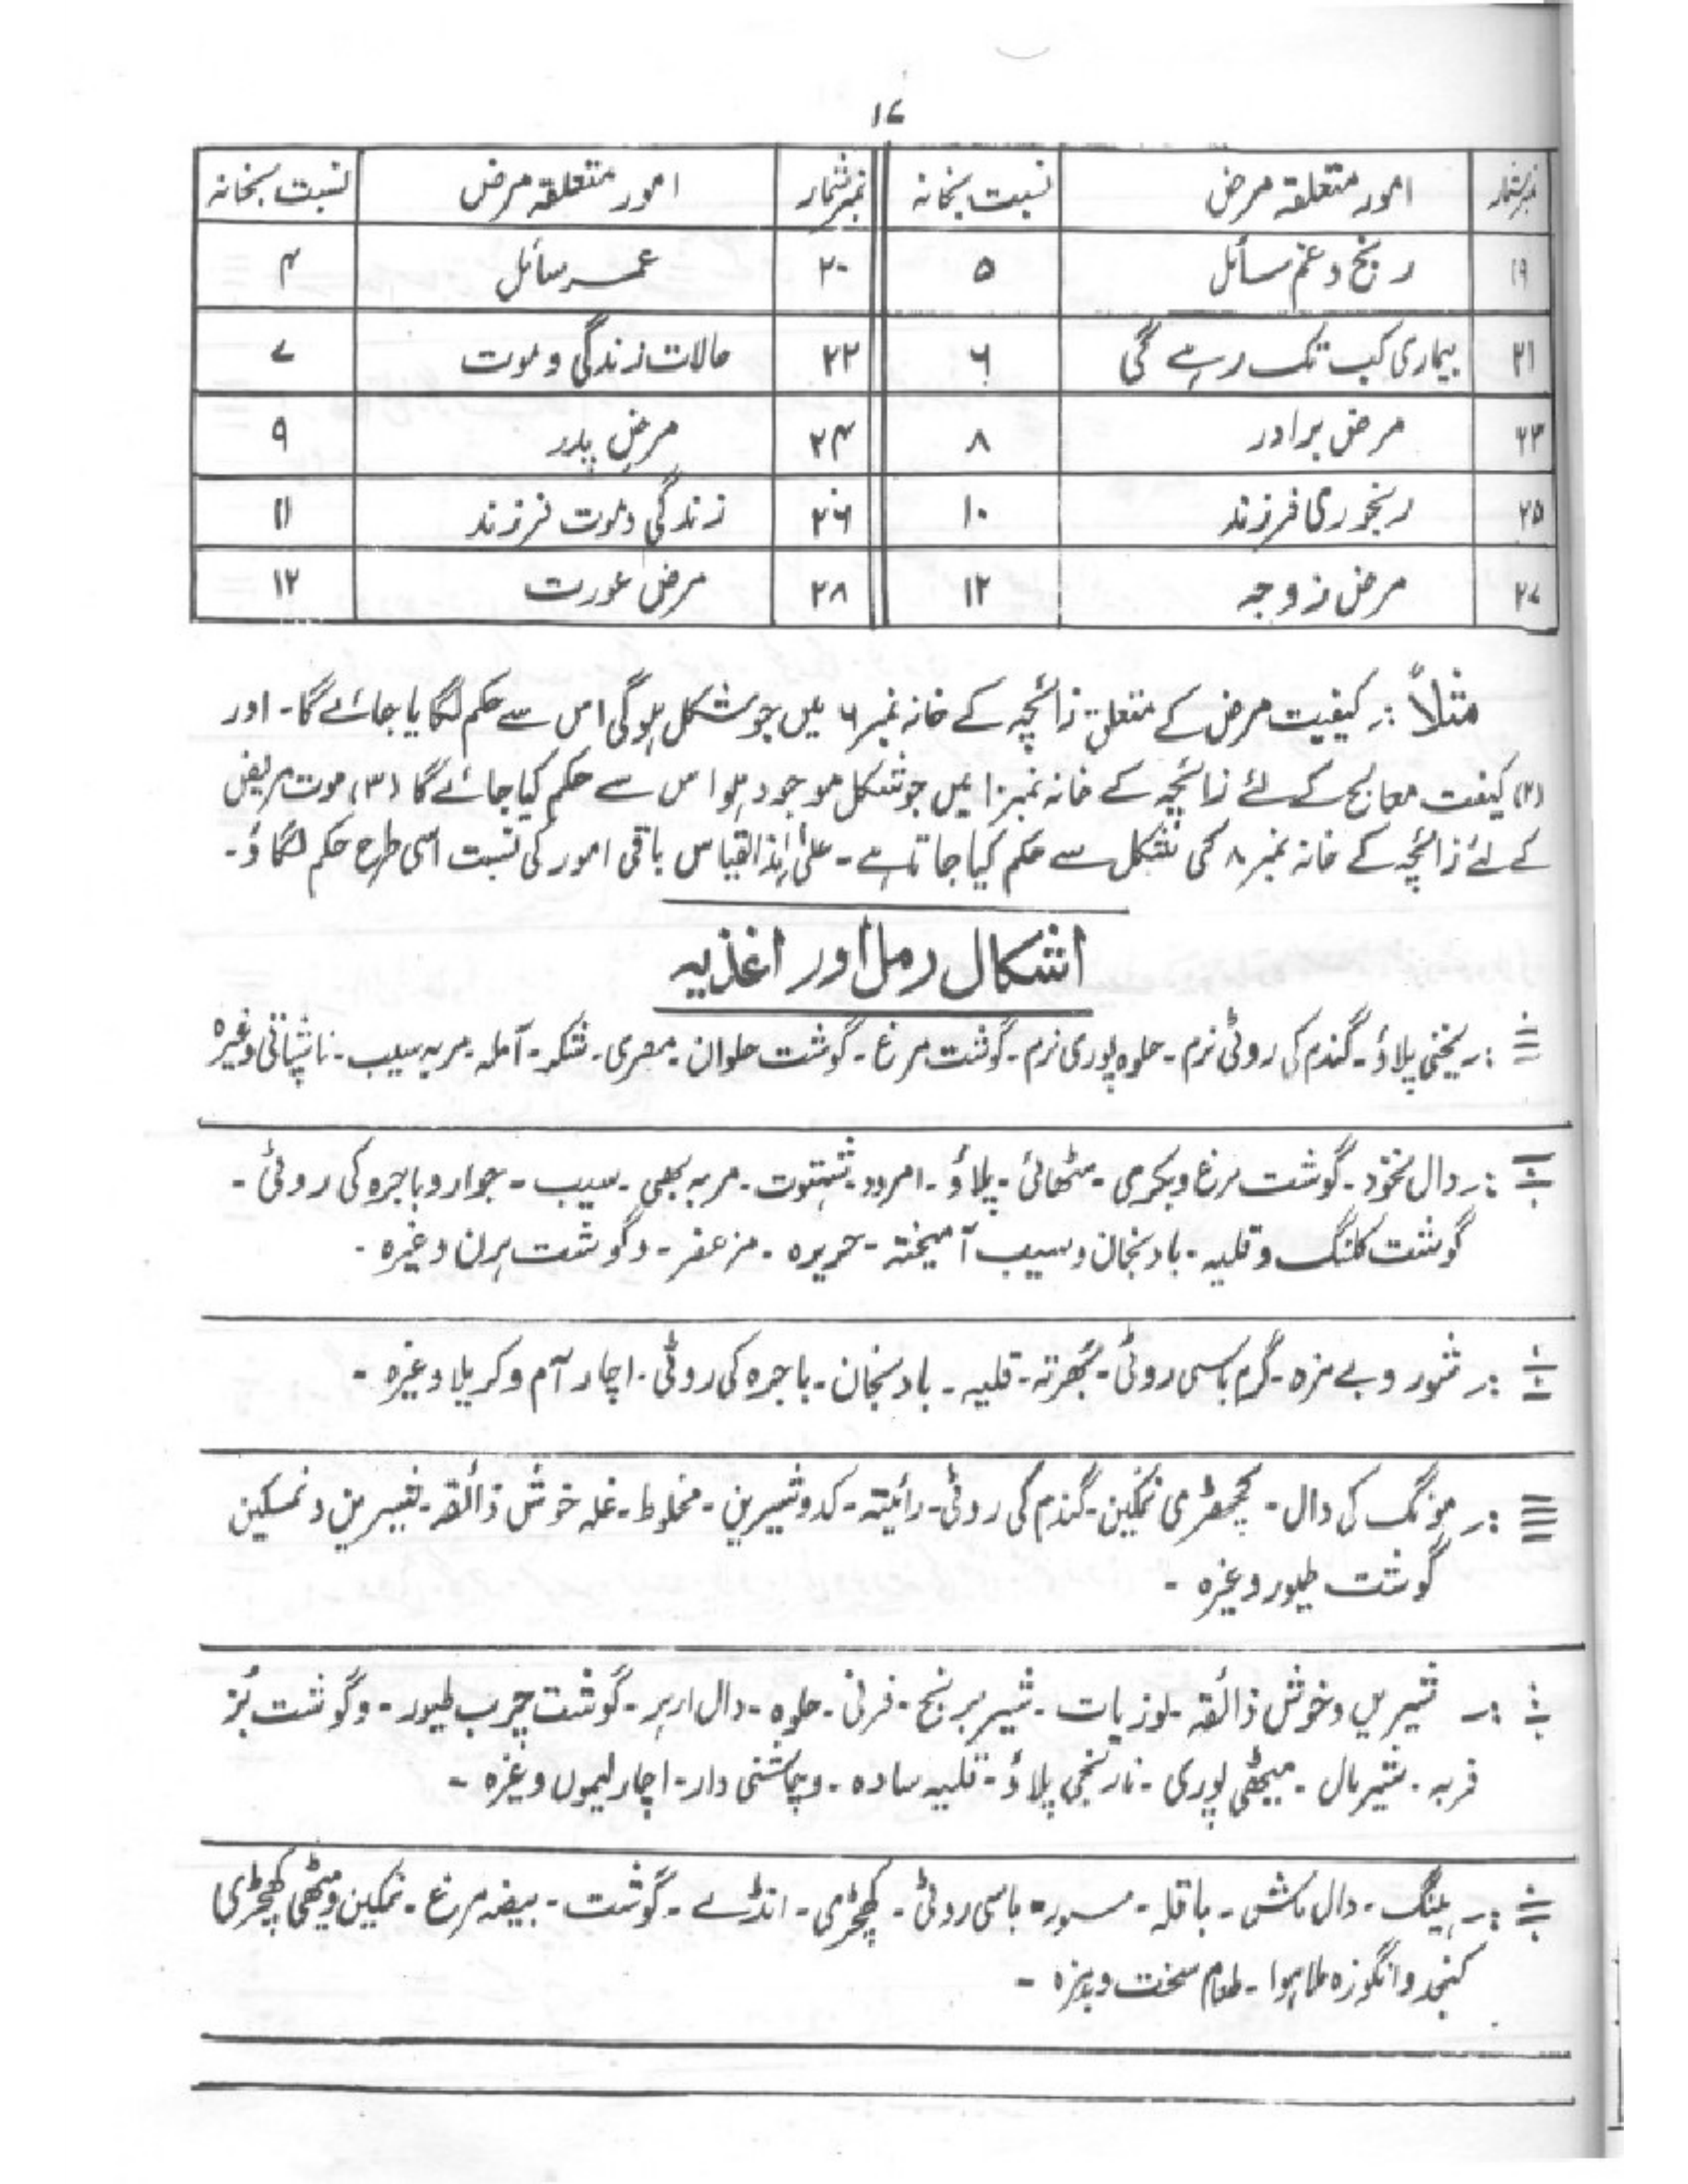 ۱۷
نمبرشمار امور متعلقہ مرض نسبت بخانہ نمبرشمار امور متعلقہ مرض نسبت بخانہ
۱۹ رنج و غم سائل ۵ ۲۰ عمر سائل ۴
۲۱ بیماری کب تک رہے گی ۶ ۲۲ حالات زندگی و موت ۷
۲۳ مرض برادر ۸ ۲۴ مرض پدر ۹
۲۵ رنجوری فرزند ۱۰ ۲۶ زندگی و موت فرزند ۱۱
۲۷ مرض زوجہ ۱۲ ۲۸ مرض عورت ۱۲
مثلاً :۔ کیفیت مرض کے متعلق زائچہ کے خانہ نمبر ۶ میں جو شکل ہوگی اس سے حکم لگایا جائے گا۔ اور
(۲) کیفت معالج کے لئے زائچہ کے خانہ نمبر ۱۰ میں جو شکل موجود ہو اس سے حکم کیا جائے گا (۳) موت مریض
کے لئے زائچہ کے خانہ نمبر ۸ کی شکل سے حکم کیا جاتا ہے۔ علیٰ ہذا القیاس باقی امور کی نسبت اسی طرح حکم لگاؤ۔
اشکال رمل اور اغذیہ
:۔ یخنی پلاؤ۔ گندم کی روٹی نرم۔ حلوہ پوری نرم۔ گوشت مرغ۔ گوشت حلوان۔ مصری۔ شکر۔ آملہ۔ مربہ سیب۔ ناشپاتی وغیرہ
:۔ دال نخود۔ گوشت مرغ و بکری۔ مٹھائی۔ پلاؤ۔ امرود۔ شہتوت۔ مربہ بہی۔ سیب۔ جوار و باجرہ کی روٹی۔
گوشت کلنگ و قلیہ۔ بادنجان و سیب آمیختہ۔ حریرہ۔ مزعفر۔ و گوشت ہرن وغیرہ۔
:۔ شور و بے مزہ۔ گرم باسی روٹی۔ بھرتہ۔ قلیہ۔ بادنجان۔ باجرہ کی روٹی۔ اچار آم و کریلا وغیرہ۔
:۔ مونگ کی دال۔ کھچڑی نمکین۔ گندم کی روٹی۔ رائیتہ۔ کدو شیرین۔ مخلوط۔ غلہ خوش ذائقہ۔ شیرین و نمکین
گوشت طیور وغیرہ۔
:۔ شیریں و خوش ذائقہ۔ لوزیات۔ شیر برنج۔ فرنی۔ حلوہ۔ دال ارہر۔ گوشت چرب طیور۔ و گوشت بُز
فربہ۔ شیرمال۔ میٹھی پوری۔ نارنجی پلاؤ۔ قلیہ سادہ۔ و چاشنی دار۔ اچار لیموں وغیرہ۔
:۔ ہینگ۔ دال ماش۔ باقلہ۔ مسور۔ باسی روٹی۔ کھچڑی۔ انڈے۔ گوشت۔ بیضہ مرغ۔ نمکین و میٹھی کھچڑی
کنجد و انگوزہ ملا ہوا۔ طعام سخت و بدمزہ۔